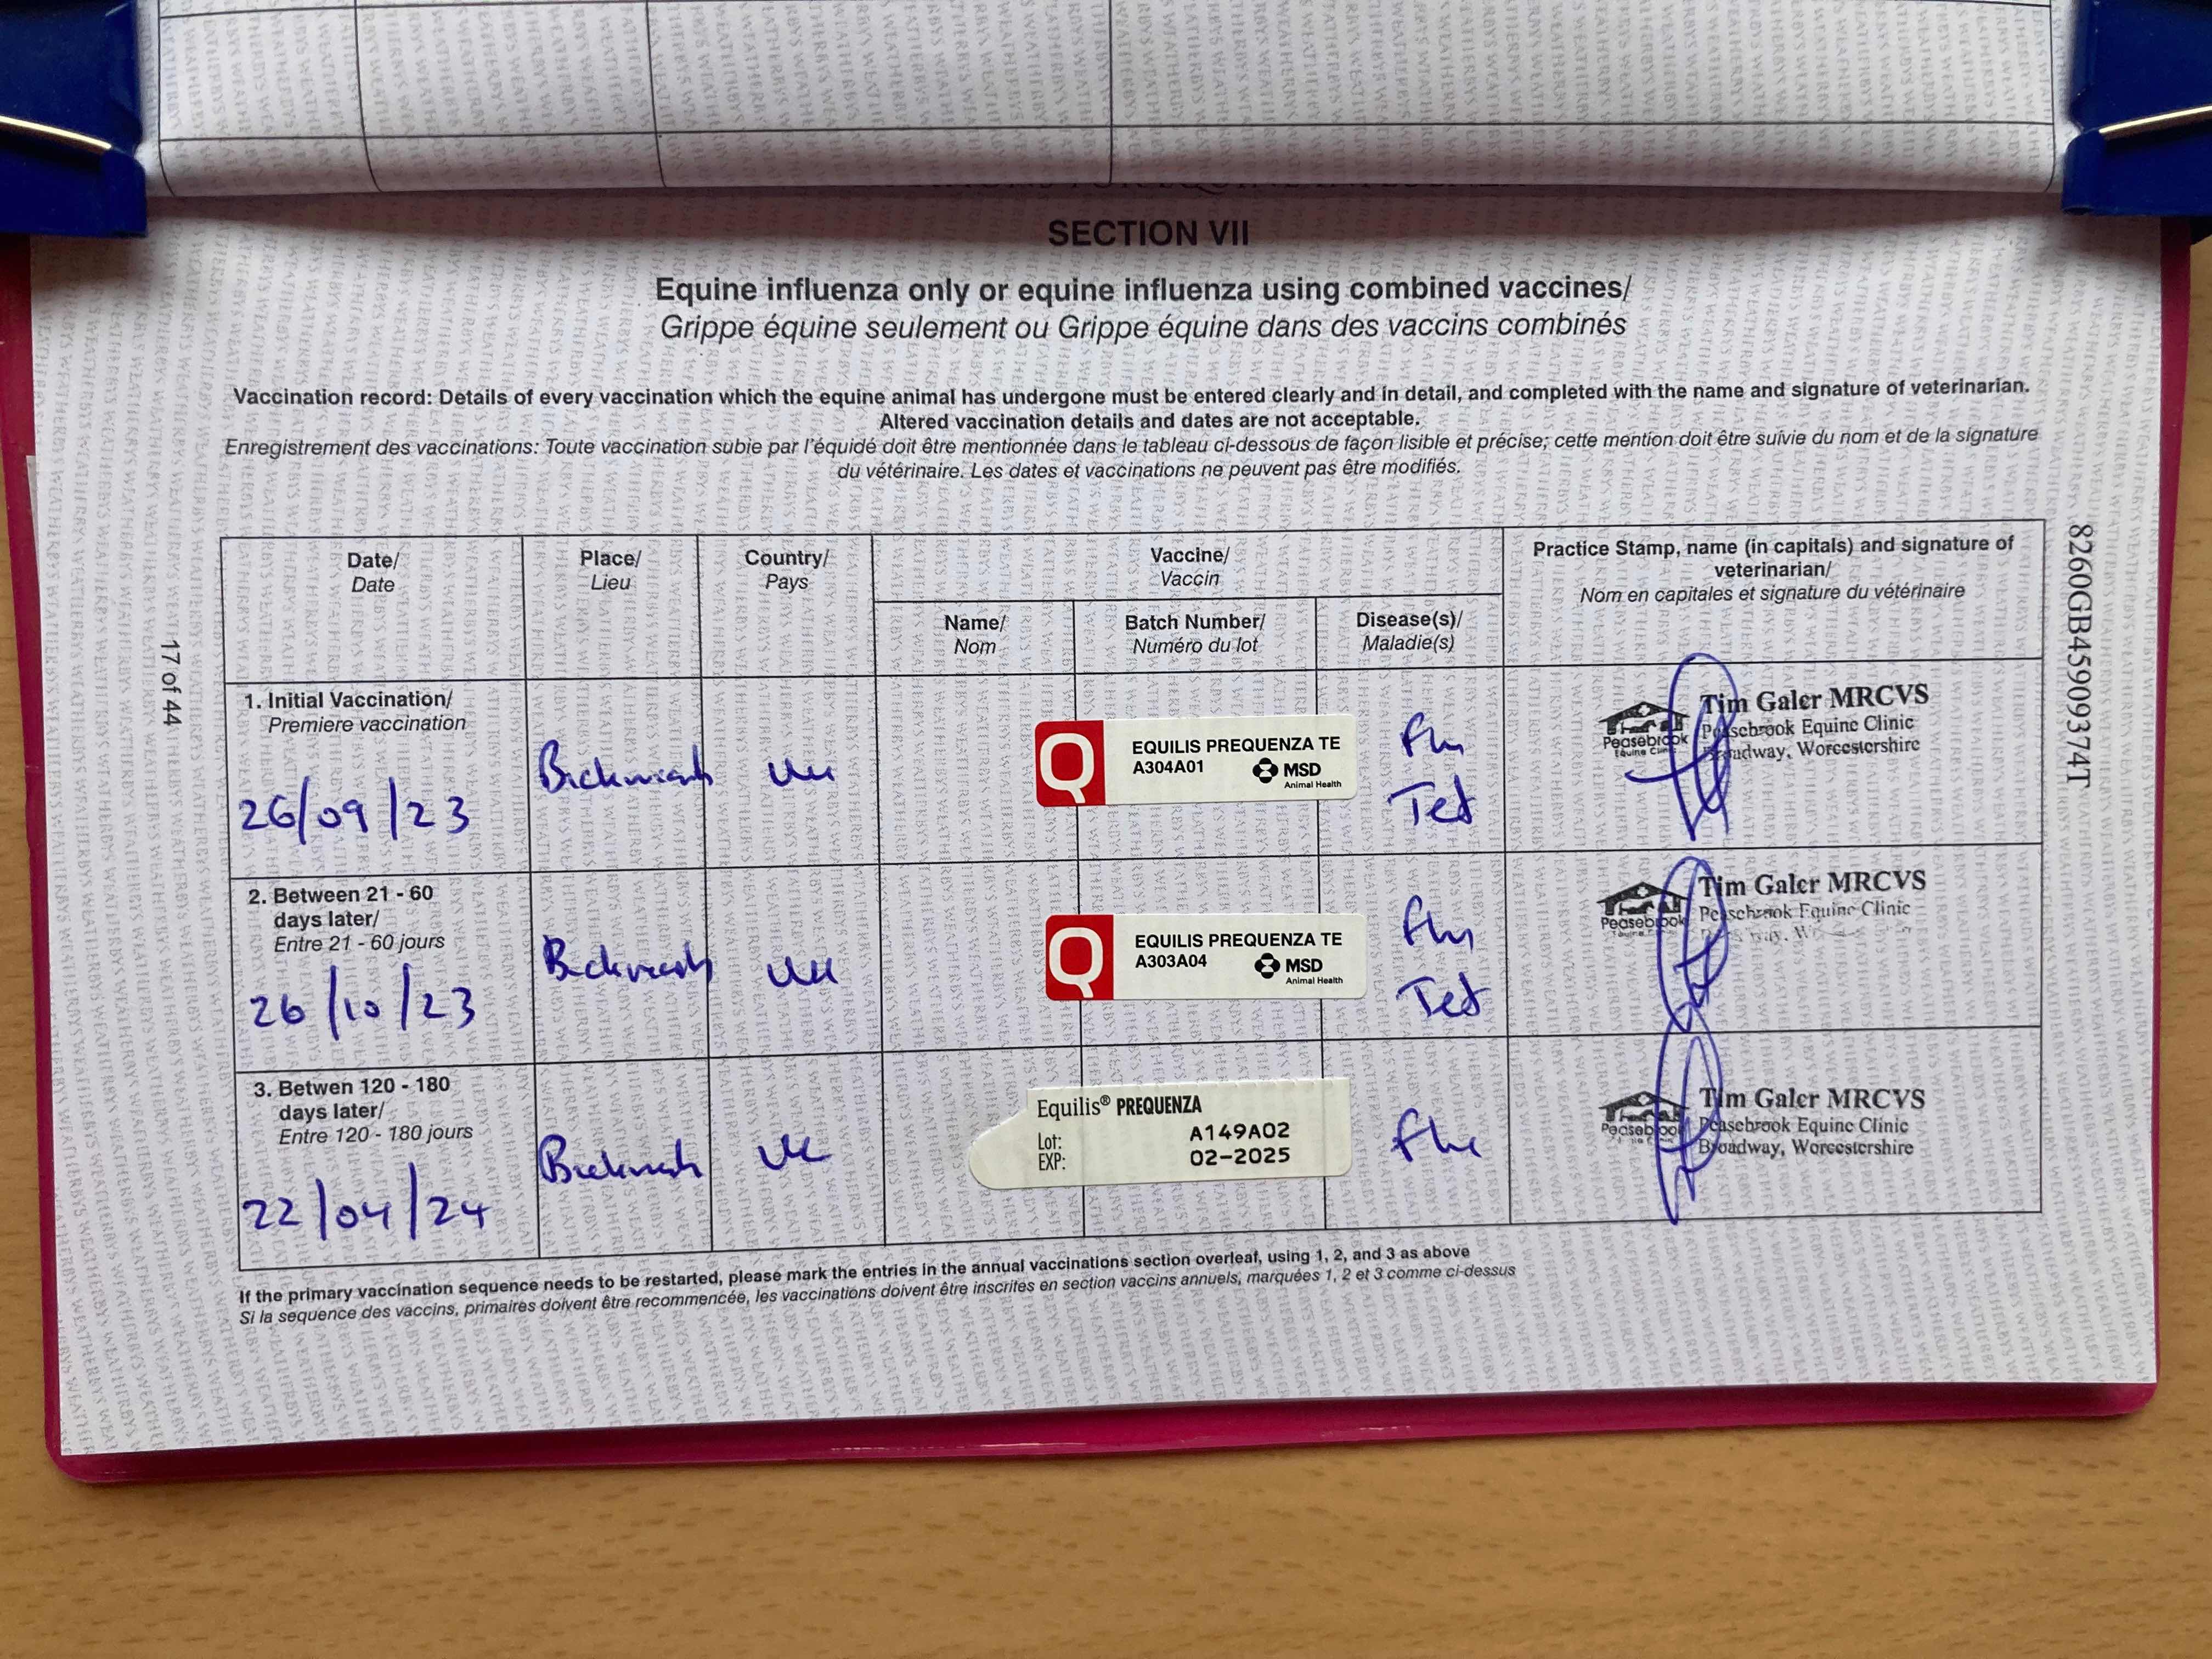 SECTION VII
Equine influenza only or equine influenza using combined vaccines/
Grippe équine seulement ou Grippe équine dans des vaccins combinés
Vaccination record: Details of every vaccination which the equine animal has undergone must be entered clearly and in detail, and completed with the name and signature of veterinarian.
Altered vaccination details and dates are not acceptable.
Enregistrement des vaccinations: Toute vaccination subie par l'équidé doit être mentionnée dans le tableau ci-dessous de façon lisible et précise; cette mention doit être suivie du nom et de la signature
du vétérinaire. Les dates et vaccinations ne peuvent pas être modifiés.
Date/
Date
Place/
Lieu
Country/
Pays
Vaccine/
Vaccin
Name/
Nom
Batch Number/
Numéro du lot
Disease(s)/
Maladie(s)
Practice Stamp, name (in capitals) and signature of
veterinarian/
Nom en capitales et signature du vétérinaire
1. Initial Vaccination/
Premiere vaccination
26/09/23
UK
Q
EQUILIS PREQUENZA TE
A304A01
MSD
Animal Health
Flu
Tet
Peasebrook
Equine Clinic
Tim Galer MRCVS
Peasebrook Equine Clinic
Broadway, Worcestershire
2. Between 21 - 60
days later/
Entre 21 - 60 jours
26/10/23
UK
Q
EQUILIS PREQUENZA TE
A303A04
MSD
Animal Health
Flu
Tet
Peasebrook
Tim Galer MRCVS
Peasebrook Equine Clinic
3. Betwen 120 - 180
days later/
Entre 120 - 180 jours
22/04/24
UK
Equilis® PREQUENZA
Lot: A149A02
EXP: 02-2025
Flu
Peasebrook
Tim Galer MRCVS
Peasebrook Equine Clinic
Broadway, Worcestershire
If the primary vaccination sequence needs to be restarted, please mark the entries in the annual vaccinations section overleaf, using 1, 2, and 3 as above
Si la sequence des vaccins, primaires doivent être recommencée, les vaccinations doivent être inscrites en section vaccins annuels, marquées 1, 2 et 3 comme ci-dessus
17 of 44
8260GB45909374T
WEATHERBYS